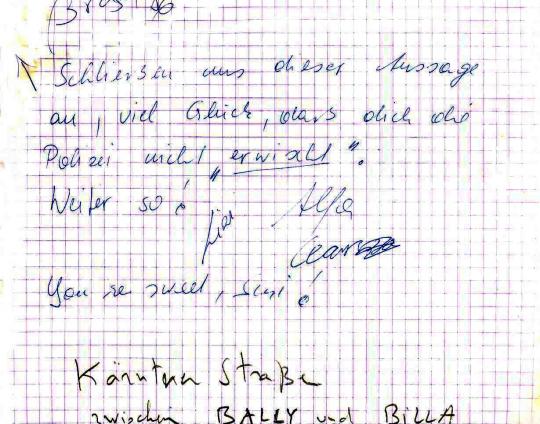 Schliersen uns dieser Aussage
an, viel Glück, dass dich die
Polizei nicht "erwischt".
Weiter so!
You're sweet,
Kärntner Straße
zwischen BALLY und BILLA